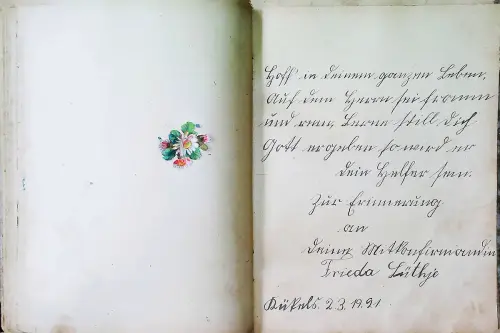 Hoff' in deinem ganzen Leben,
Auf den Herrn sei fromm
und rein, Lerne still dich
Gott ergeben so wird er
dein Helfer sein.
Zur Erinnerung
an
deine Mitkonfirmandin
Frieda Lüthje
Kükels. 2.3.1921.